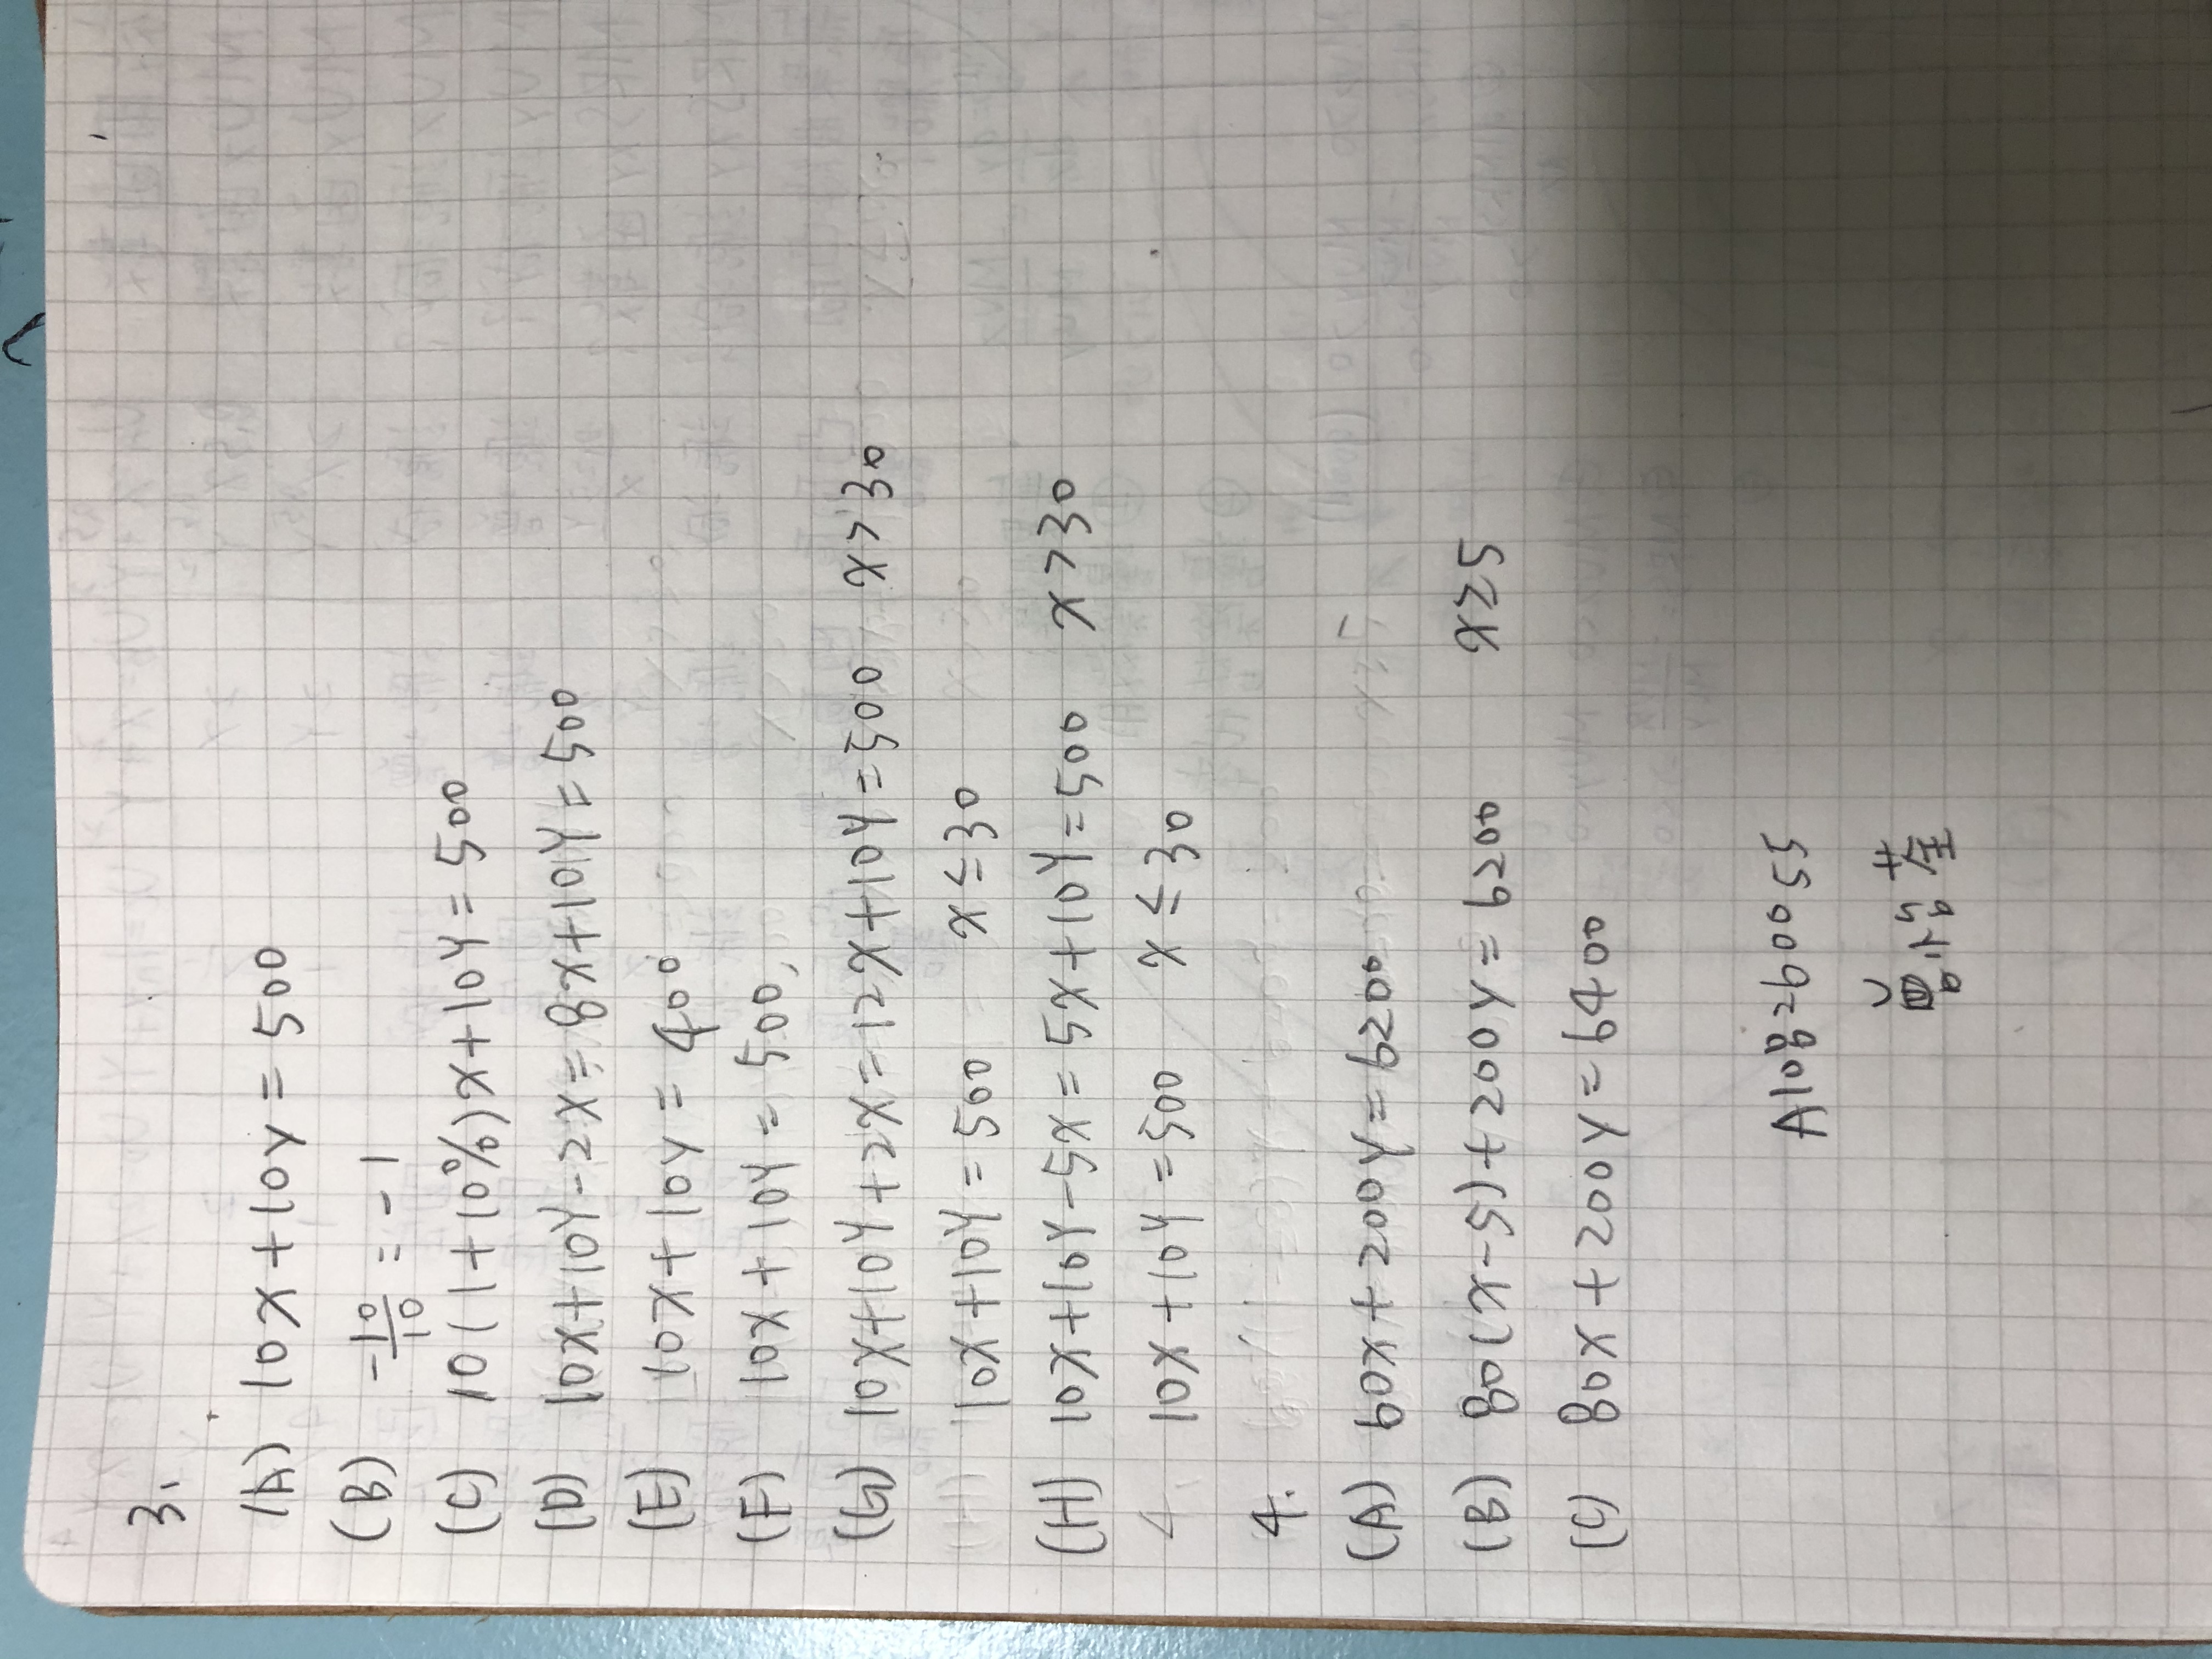 3.
(A) 10x+10y=500
(B) -10/10 = -1
(C) 10(1+10%)x+10Y=500
(D) 10x+10Y-2x=8x+10Y=500
(E) 10x+10y=400
(F) 10x+10Y=500,
(G) 10x+10Y+2x=12x+10Y=500 x>30
10x+10Y=500 x≤30
(H) 10x+10Y-5x=5x+10Y=500 x>30
4. 10x+10Y=500 x≤30
4.
(A) 60x+200Y=6200
(B) 80(x-5)+200Y=6200 x≥5
(C) 80x+200Y=6400
A108260055